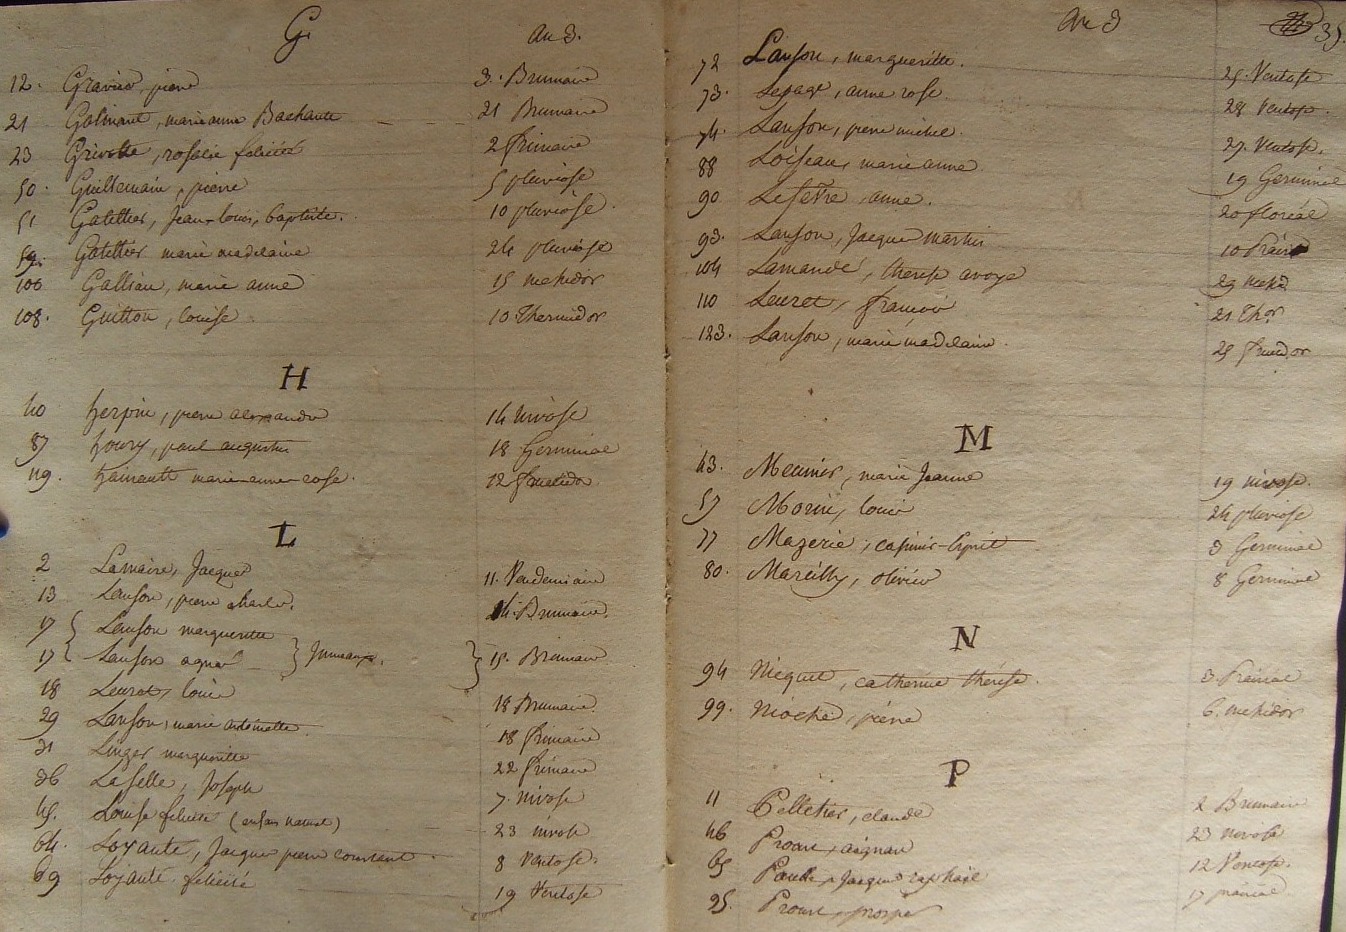 G
An 3.
12. Gravier, pierre 3. Brumaire
21 Galinant, marie anne Bachante 21 Brumaire
23 Grivotte, rosalie felicité 2 frimaire
50. Guillemain, pierre 5 pluviôse
51 Galettier, Jean-louis, baptiste. 10 pluviôse
59. Galettier marie madelaine 24 pluviôse
100 Gallian, marie anne 15 messidor
108. Guitton, louise 10 Thermidor
H
40 herpin, pierre alexandre 14 Nivôse
87 houry, paul augustin 18 Germinal
119. hainault marie-anne-rose. 12
L
2 Lamaire, Jacques 11. Vendemiaire
13 Lanson, pierre charles. 14. Brumaire.
17 Lanson margueritte
17 Lanson agnès Jumeaux. 15. Brumaire
18 Leuret, louis 18 Brumaire.
29 Lanson, marie antoinette. 18 frimaire
31 Linger margueritte 22 frimaire
36 Laselle, Joseph 7. nivose
45. Louise felicité (enfant naturel) 23 nivose
64. Loyauté, Jacques pierre constant. 8 Ventose.
69 Loyauté felicité 19 Ventose
An 3
35.
72 Lanson, margueritte. 25. Ventose
73. Lepage, anne rose. 28 Ventose.
74. Lanson, pierre michel. 27. Ventose.
88 Loiseau, marie anne 19 Germinal
90 Lefevre, anne. 20 floréal
93. Lanson, Jacques martin 10 Prairial
104 Lamandé, therese avoye 29 messid
110 Leuret, françois 21 Thor
123. Lanson, marie madelaine. 25 fructidor
M
43. Meunier, marie Jeanne 19 nivose.
57 Morin, louis 24 pluviose
77 Mazerie, casimir-Esprit 3 Germinal
80. Mareilly, olivier 8 Germinal
N
94 Niquet, catherine thérèse. 3. Prairial
99. Nioche, pierre 6. messidor
P
11 Pelletier, claude 2 Brumaire
46 Proux, aignan 23 nivose
65 Jacques raphael 12 Ventose.
95. Proux, prosper 17 prairial